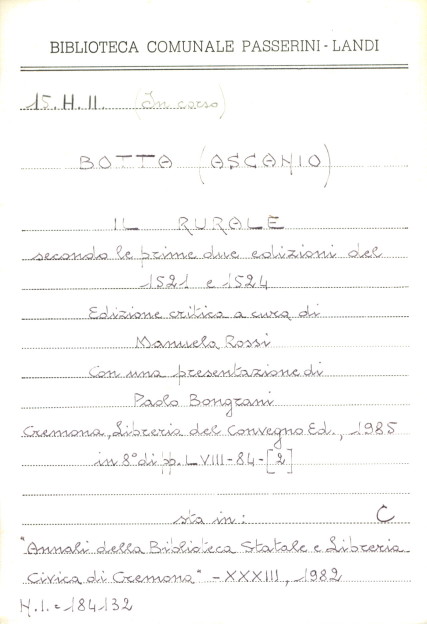 BIBLIOTECA COMUNALE PASSERINI-LANDI
15.H.11. (In corso)
BOTTA (ASCANIO)
IL RURALE
secondo le prime due edizioni del
1521 e 1524
Edizione critica a cura di
Manuela Rossi
Con una presentazione di
Paolo Bongrani
Cremona, Libreria del Convegno Ed., 1985
in 8° di pp. LVIII-84-[2]
sta in: C
"Annali della Biblioteca Statale e Libreria
Civica di Cremona" - XXXIII, 1982
N.I. = 184132